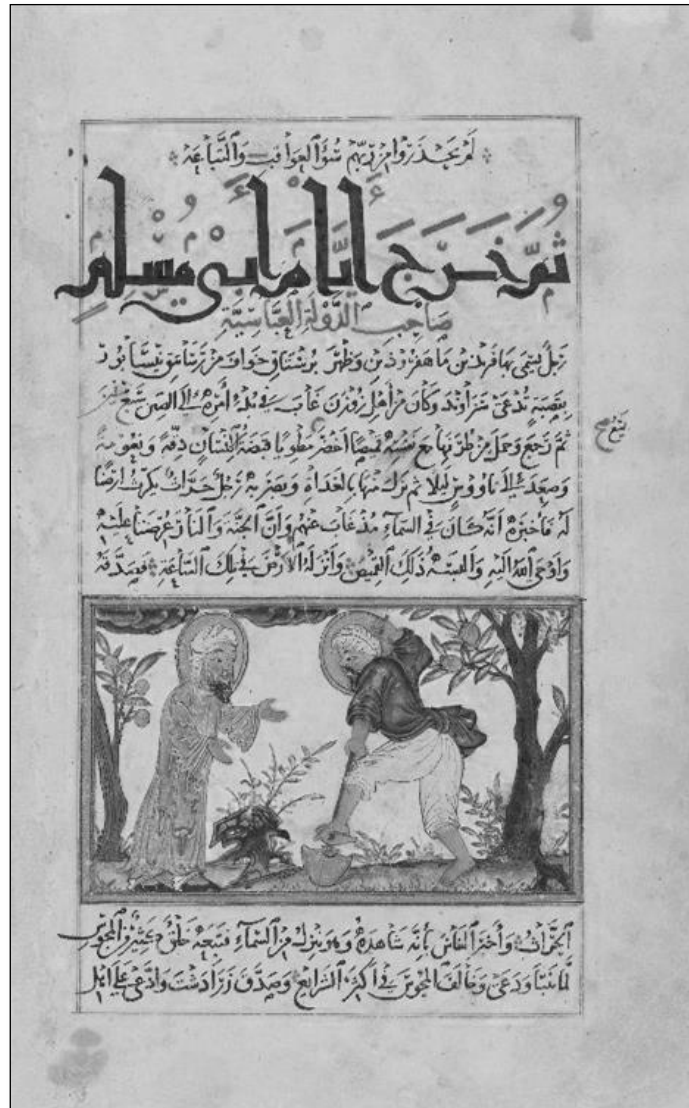 لم يحذروا من ربهم سوء العواقب والتباعة
ثم خرج أيام أبي مسلم
صاحب الدولة العباسية
رجل يسمى بهافريذ بن ماه فروذين وظهر برستاق خواف من رساتيق نيسابور
بقصبة تدعى سراوند وكان من أهل زوزن غاب في بدء أمره إلى الصين سبع سنين
ثم رجع وحمل من طرفها مع نفسه قميصا أخضر مطويا قبضة الإنسان دقة ونعومة
وصعد إلى ناووس ليلا ثم نزل منها بالغداة وبصر به رجل حراث يكرث أرضا
له فأخبره أنه كان في السماء مذ غاب عنهم وأن الجنة والنار عرضتا عليه
وأوحى الله إليه وألبسه ذلك القميص وأنزله الأرض في تلك الساعة فصدقه
الحراث وأخبر الناس بأنه شاهده وهو ينزل من السماء فتبعه خلق كثير من المجوس
لما تنبا ودعى وخالف المجوس في أكثر الشرايع وصدق زرادشت وادعى على أهل